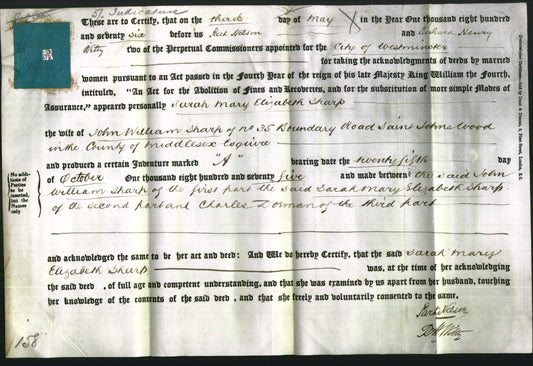 57 Indicature
These are to Certify, that on the third day of May in the Year One thousand eight hundred
and seventy six before us Rich Nelson and Richard Henry
Witty two of the Perpetual Commissioners appointed for the City of Westminster
for taking the acknowledgments of deeds by married
women pursuant to an Act passed in the Fourth Year of the reign of his late Majesty King William the Fourth,
intituled, "An Act for the Abolition of Fines and Recoveries, and for the substitution of more simple Modes of
Assurance," appeared personally Sarah Mary Elizabeth Sharp
the wife of John William Sharp of No 35 Boundary Road Saint Johns Wood
in the County of Middlesex Esquire
and produced a certain Indenture marked "A" bearing date the twenty fifth day
of October One thousand eight hundred and seventy five and made between the said John
William Sharp of the first part the said Sarah Mary Elizabeth Sharp
of the second part and Charles Dorman of the third part
No additions of Parties to be inserted, but the Names only
and acknowledged the same to be her act and deed: And We do hereby Certify, that the said Sarah Mary
Elizabeth Sharp was, at the time of her acknowledging
the said deed, of full age and competent understanding, and that she was examined by us apart from her husband, touching
her knowledge of the contents of the said deed, and that she freely and voluntarily consented to the same.
Rich Nelson
R H Witty
158